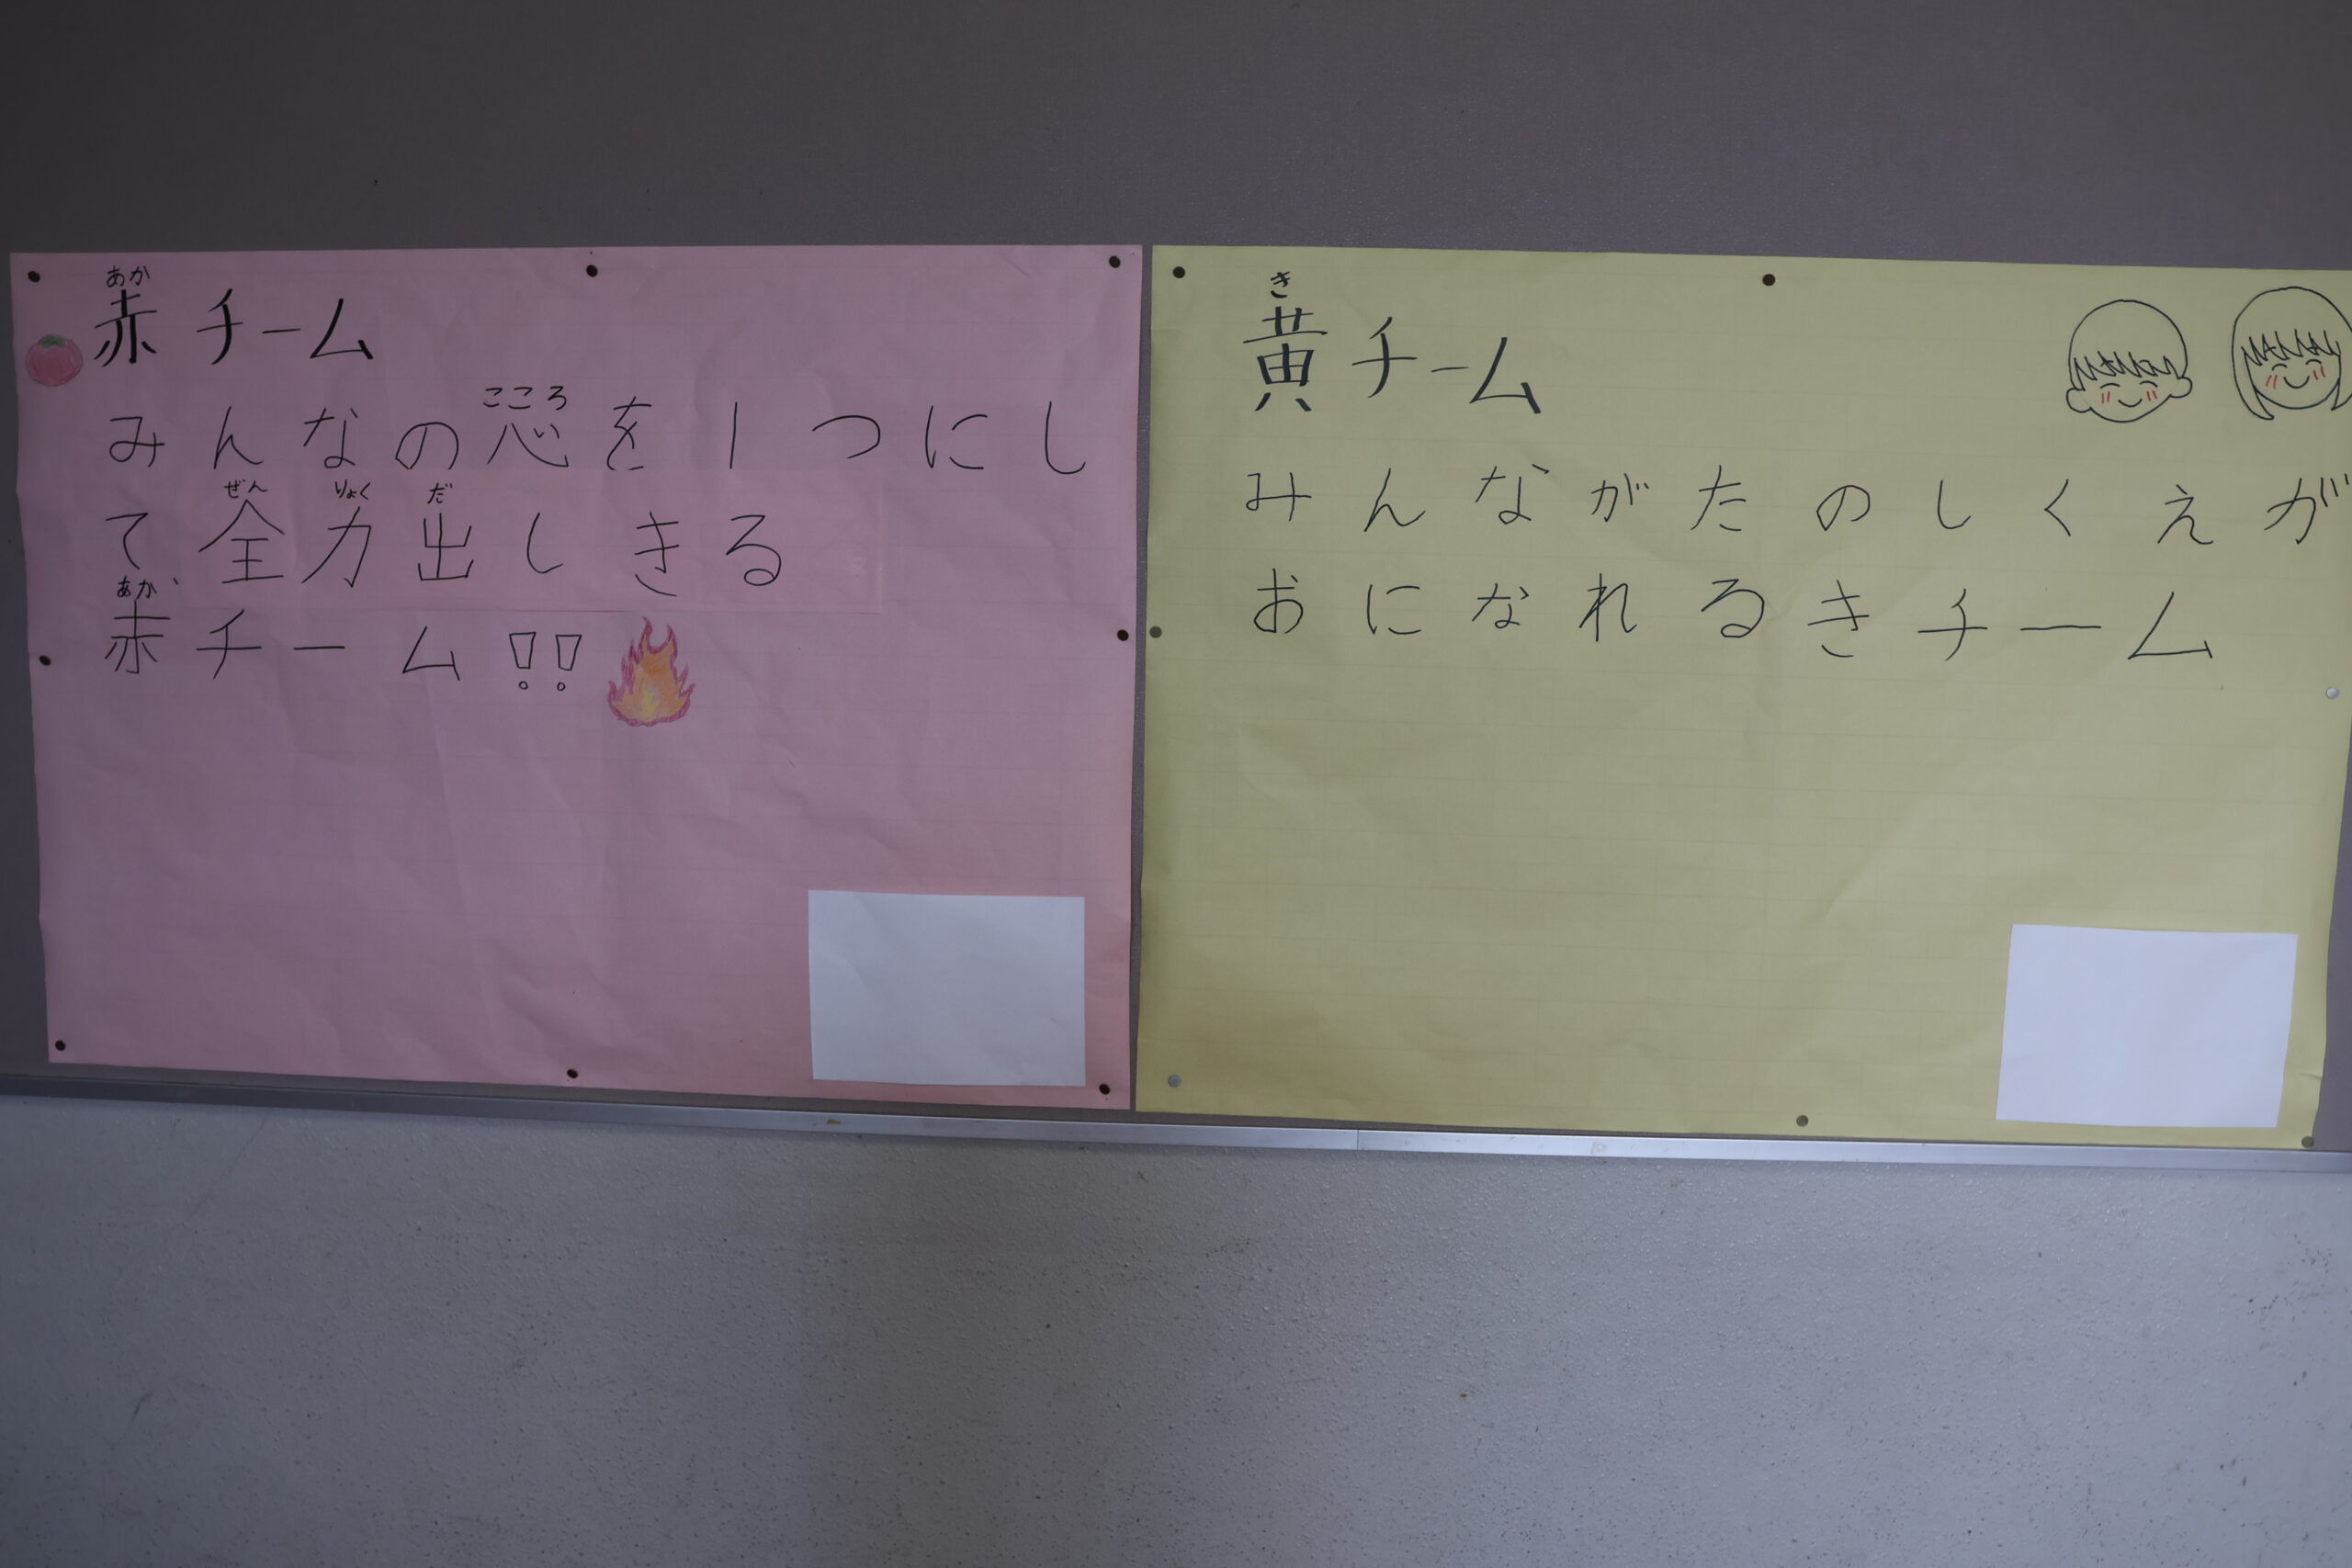 あか
赤チーム
こころ
みんなの心を1つにし
ぜん りょく だ
て全力出しきる
あか
赤チーム!!
き
黄チーム
みんながたのしくえが
おになれるきチーム